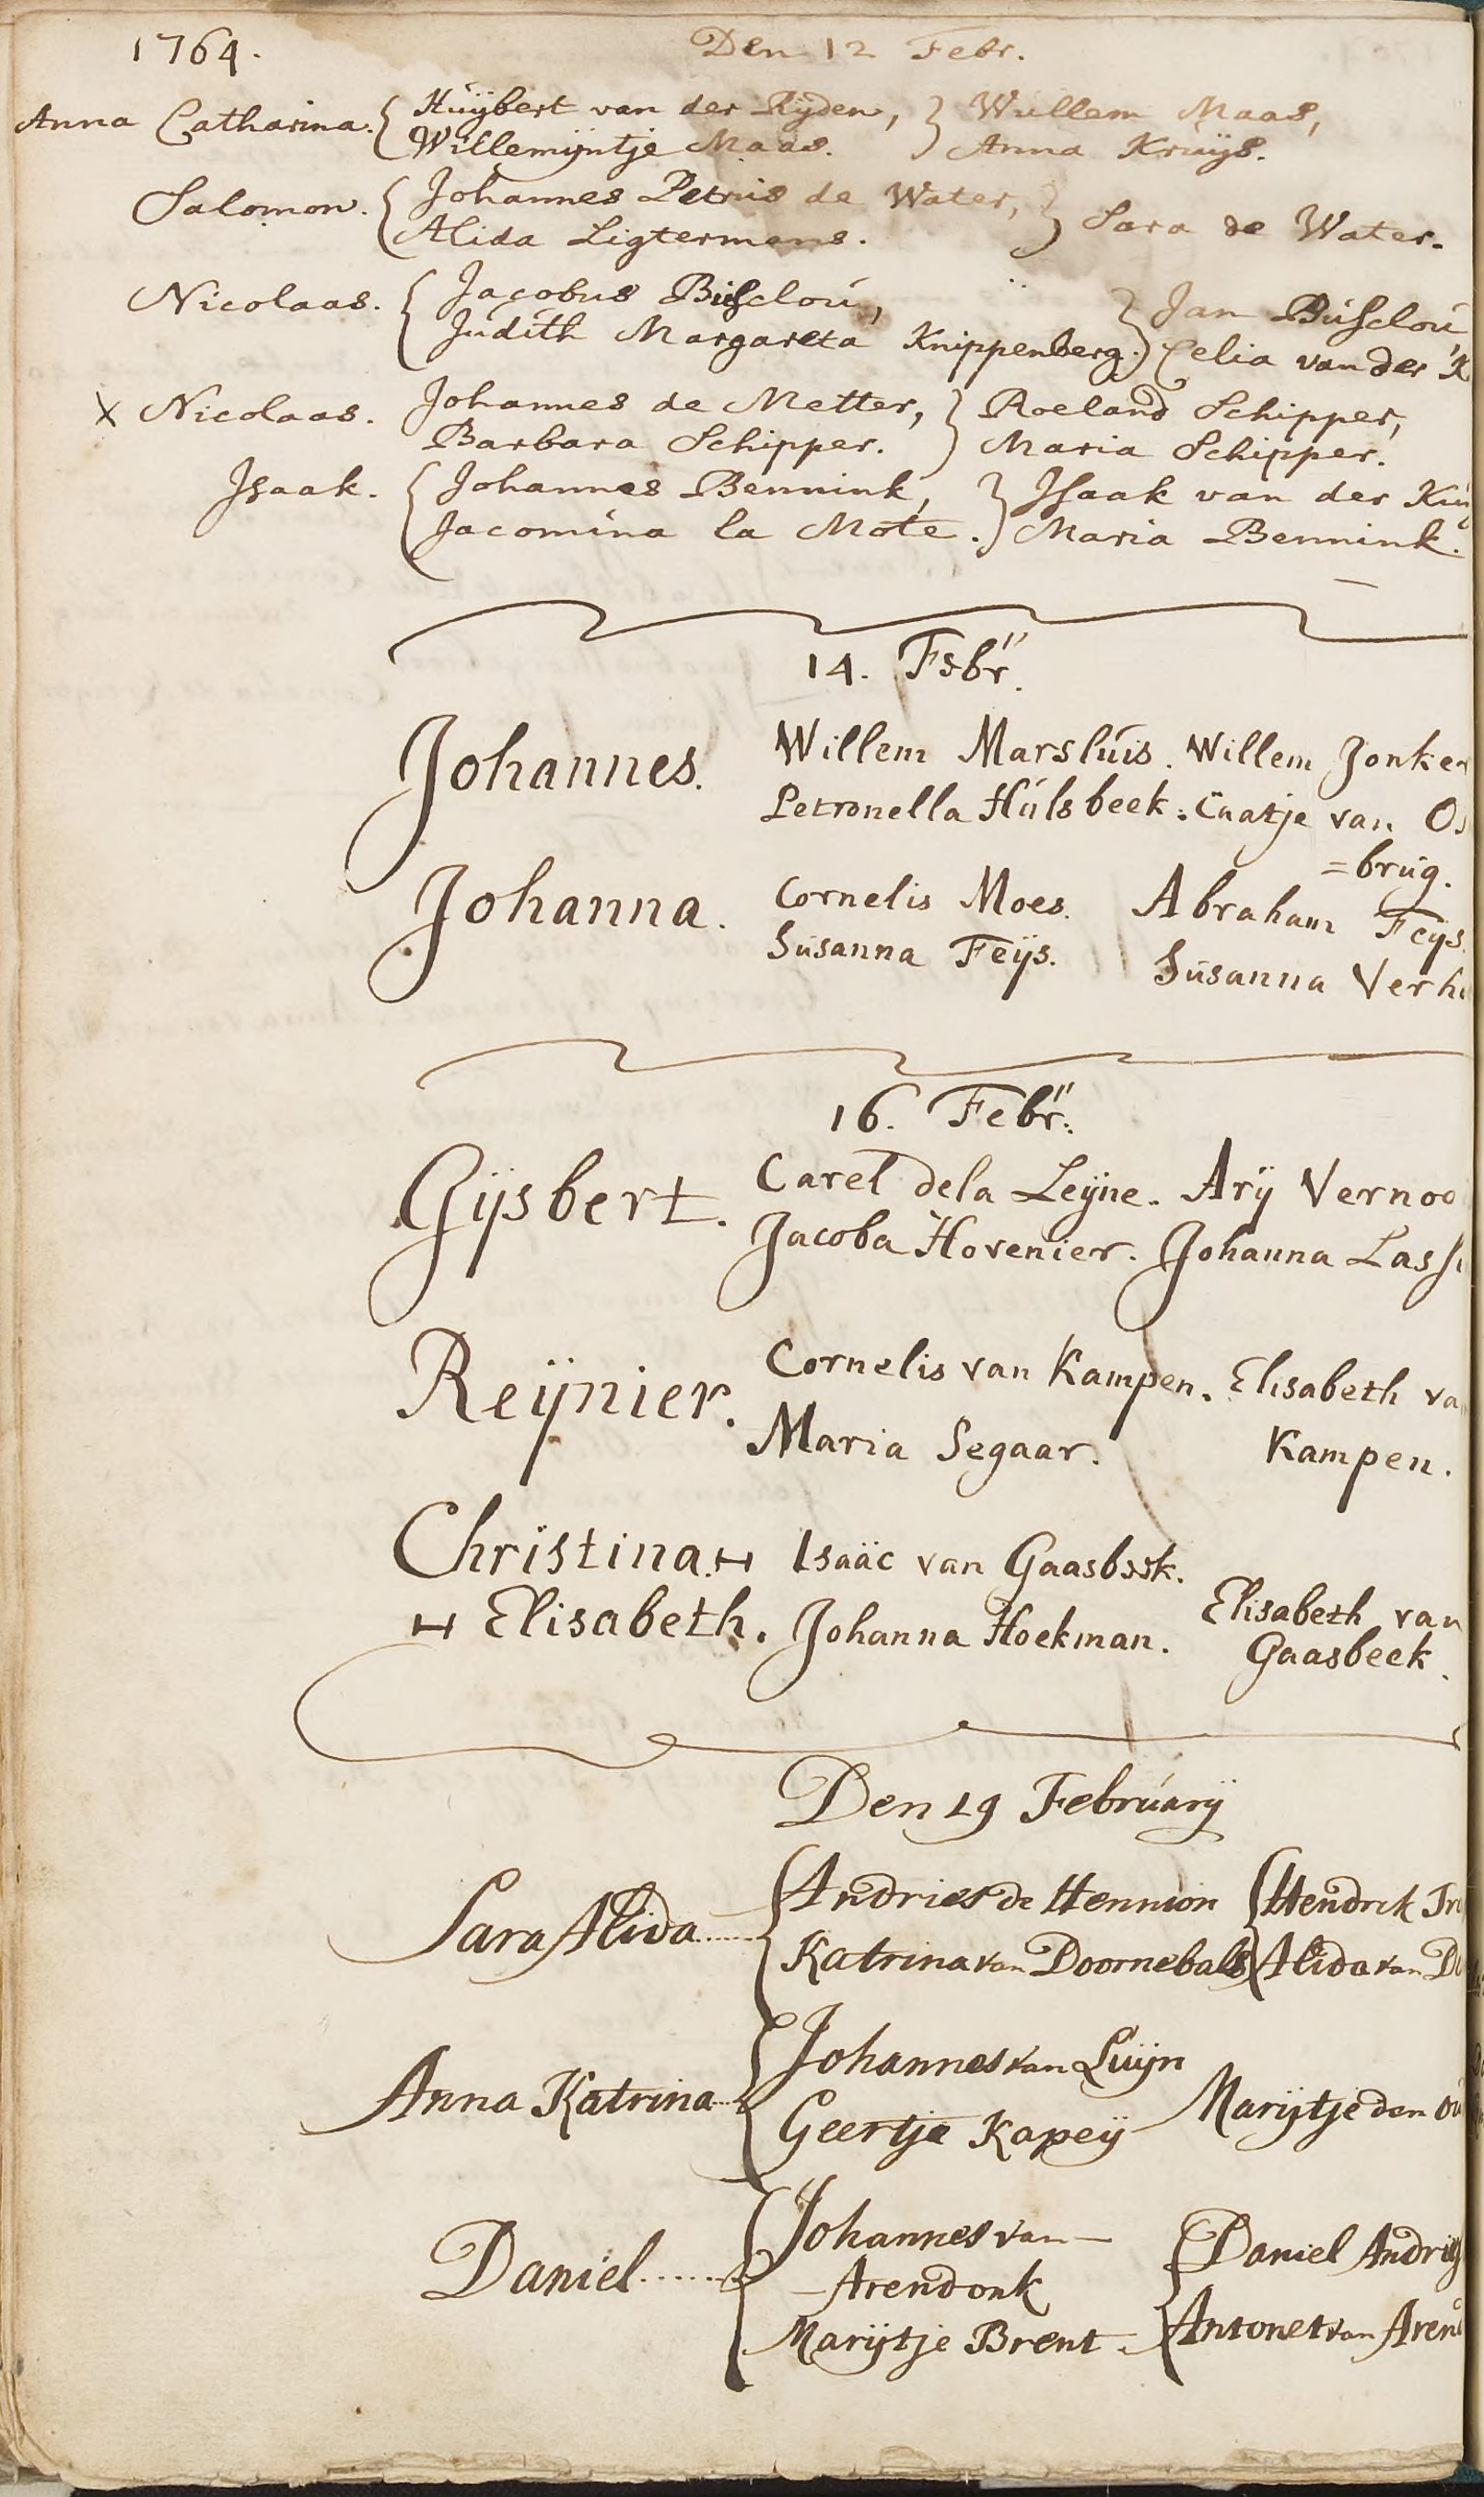 1764. Den 12 Febr.
Anna Catharina. { Huijbert van der Rijden, } Willem Maas,
Willemijntje Maas. Anna Kruijs.
Salomon. { Johannes Petrus de Water, } Sara de Water.
Alida Ligtermans.
Nicolaas. { Jacobus Busclou, } Jan Busclou,
Judith Margareta Knippenberg. Celia van der
X Nicolaas. Johannes de Metter, } Roeland Schipper,
Barbara Schipper. Maria Schipper.
Isaak. { Johannes Bennink, } Isaak van der
Jacomina la Mote. Maria Bennink.
14. Febr.
Johannes. Willem Marsluis. Willem Jonker
Petronella Hulsbeek. Caatje van Os
=brug.
Johanna. Cornelis Moes. Abraham Feijs.
Susanna Feijs. Susanna
16. Febr.
Gijsbert. Carel dela Leijne. Arij
Jacoba Hovenier. Johanna
Reijnier. Cornelis van Kampen. Elisabeth va
Maria Segaar. Kampen.
Christina Isaäc van Gaasbeek.
Elisabeth. Johanna Hoekman. Elisabeth van
Gaasbeek.
Den 19 February
Sara Alida { Andries de Hennion { Hendrik
Katrina van Doornebals { Alida van
Anna Katrina { Johannes van Luijn
Geertje Kapeij Marijtje den
Daniel { Johannes van
Arendonk { Daniel
Marijtje Brent { Antonet van